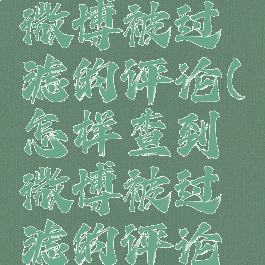 微博被过
滤的评论(
怎样查到
微博被过
滤的评论